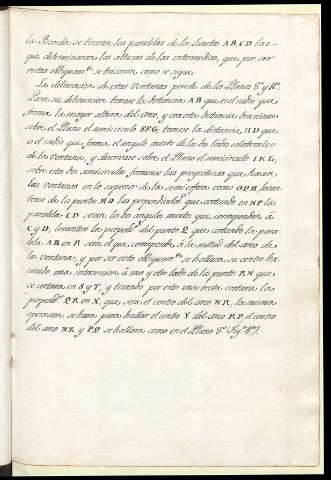 la Boveda se tiraran las paralelas de los puntos A B, C D las
que determinaran las alturas de las intermedias, que por ser
vistas obliquam.te se trazaran como se sigue.
La delineacion de estas Ventanas pende de los Planos 3.º y 4.º
Para su delineacion tomese la distancia A B que es el radio que
forma la mayor altura del arco, y con esta distancia descrivase
sobre el Plano el semicirculo E F G, tomese la distancia, H D que
es el radio que forma el angulo mixto de los dos lados colaterales
de las Ventanas, y descrivase sobre el Plano el semicirculo I K L,
sobre estos dos semicirculos formense las proyecciones que haran
las ventanas en lo superior de la semiesfera como O P Q R, levan-
tense de los puntos M Q las perpendiculares que cortando en N P la
paralela C D seran los dos angulos mixtos que corresponden à
C y D, levantese la perpend.r del punto Q que cortando la para-
lela A B en R sera el que corresponde à la mitad del arco de
la ventana, y por ser visto obliquam.te se hallara su centro ha-
ciendo una interseccion à uno y otro lado de los puntos R N que
se cortara en S y T, y tirando por estos una recta cortara la
perpend.r Q R en X, que sera el centro del arco N R, la misma
operacion se hara para hallar el centro Y del arco R P, el centro
del arco N Z y P Q se hallara como en el Plano 3.º Fig.ª 4.ª